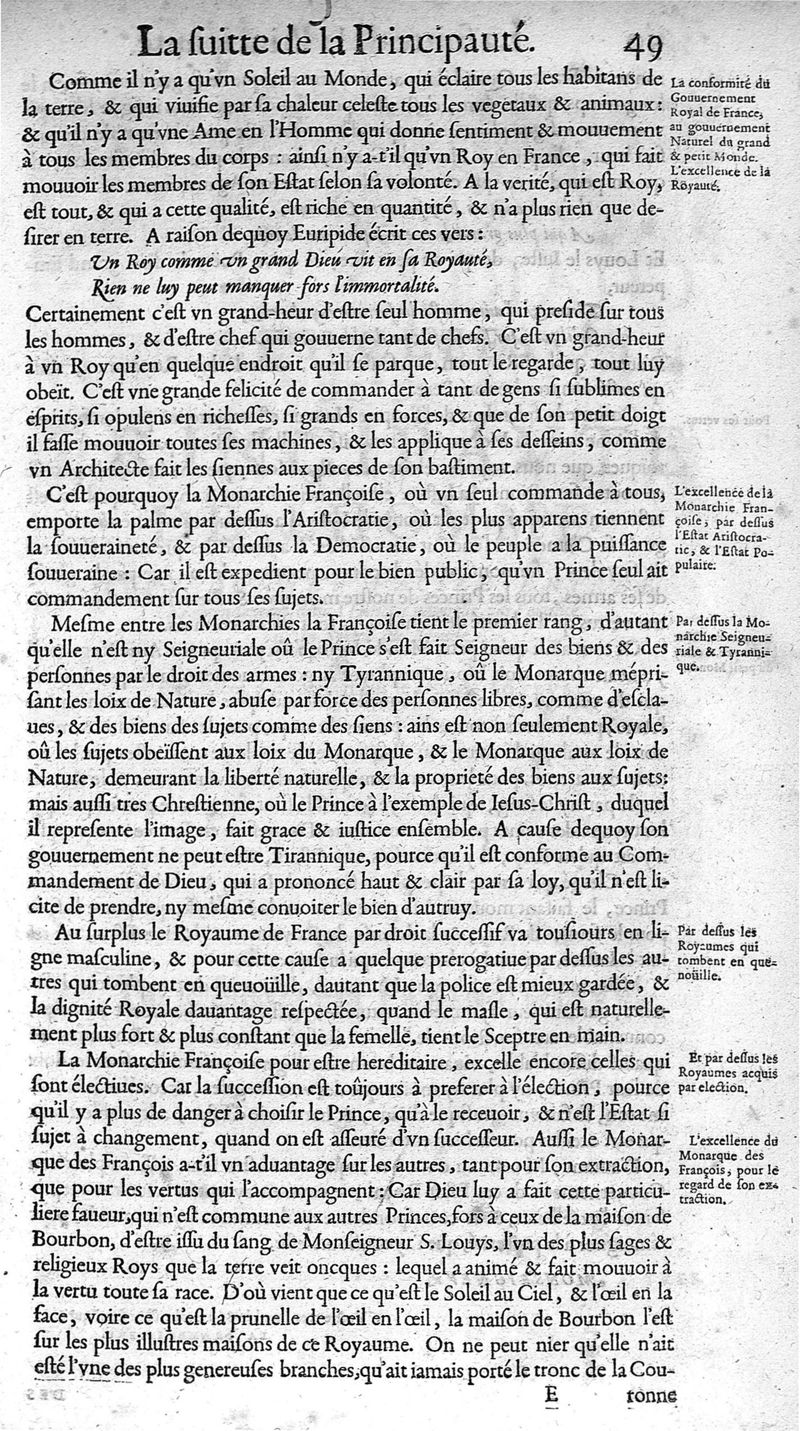 La ſuitte de la Principauté. 49
Comme il n'y a qu'vn Soleil au Monde, qui éclaire tous les habitans de
la terre, & qui viuifie par ſa chaleur celeſte tous les vegetaux & animaux:
& qu'il n'y a qu'vne Ame en l'Homme qui donne ſentiment & mouuement
à tous les membres du corps : ainſi n'y a-t'il qu'vn Roy en France, qui fait
mouuoir les membres de ſon Eſtat ſelon ſa volonté. A la verité, qui eſt Roy,
eſt tout, & qui a cette qualité, eſt riche en quantité, & n'a plus rien que de-
ſirer en terre. A raiſon dequoy Euripide écrit ces vers :
Un Roy comme vn grand Dieu vit en ſa Royauté,
Rien ne luy peut manquer fors l'immortalité.
Certainement c'eſt vn grand-heur d'eſtre ſeul homme, qui preſide ſur tous
les hommes, & d'eſtre chef qui gouuerne tant de chefs. C'eſt vn grand-heur
à vn Roy qu'en quelque endroit qu'il ſe parque, tout le regarde, tout luy
obeït. C'eſt vne grande felicité de commander à tant de gens ſi ſublimes en
eſprits, ſi opulens en richeſſes, ſi grands en forces, & que de ſon petit doigt
il faſſe mouuoir toutes ſes machines, & les applique à ſes deſſeins, comme
vn Architecte fait les ſiennes aux pieces de ſon baſtiment.
C'eſt pourquoy la Monarchie Françoiſe, où vn ſeul commande à tous,
emporte la palme par deſſus l'Ariſtocratie, où les plus apparens tiennent
la ſouueraineté, & par deſſus la Democratie, où le peuple a la puiſſance
ſouueraine : Car il eſt expedient pour le bien public, qu'vn Prince ſeul ait
commandement ſur tous ſes ſujets.
Meſme entre les Monarchies la Françoiſe tient le premier rang, d'autant
qu'elle n'eſt ny Seigneuriale oû le Prince s'eſt fait Seigneur des biens & des
perſonnes par le droit des armes : ny Tyrannique, oû le Monarque mépri-
ſant les loix de Nature, abuſe par force des perſonnes libres, comme d'eſcla-
ues, & des biens des ſujets comme des ſiens : ains eſt non ſeulement Royale,
oû les ſujets obeïſſent aux loix du Monarque, & le Monarque aux loix de
Nature, demeurant la liberté naturelle, & la proprieté des biens aux ſujets:
mais auſſi tres Chreſtienne, où le Prince à l'exemple de Ieſus-Chriſt, duquel
il repreſente l'image, fait grace & iuſtice enſemble. A cauſe dequoy ſon
gouuernement ne peut eſtre Tirannique, pource qu'il eſt conforme au Com-
mandement de Dieu, qui a prononcé haut & clair par ſa loy, qu'il n'eſt li-
cite de prendre, ny meſme conuoiter le bien d'autruy.
Au ſurplus le Royaume de France par droit ſucceſſif va touſiours en li-
gne maſculine, & pour cette cauſe a quelque prerogatiue par deſſus les au-
tres qui tombent en queuoüille, dautant que la police eſt mieux gardée, &
la dignité Royale dauantage reſpectée, quand le maſle, qui eſt naturelle-
ment plus fort & plus conſtant que la femelle, tient le Sceptre en main.
La Monarchie Françoiſe pour eſtre hereditaire, excelle encore celles qui
ſont électiues. Car la ſucceſſion eſt toûjours à preferer à l'élection, pource
qu'il y a plus de danger à choiſir le Prince, qu'à le receuoir, & n'eſt l'Eſtat ſi
ſujet à changement, quand on eſt aſſeuré d'vn ſucceſſeur. Auſſi le Monar-
que des François a-t'il vn aduantage ſur les autres, tant pour ſon extraction,
que pour les vertus qui l'accompagnent : Car Dieu luy a fait cette particu-
liere faueur, qui n'eſt commune aux autres Princes, fors à ceux de la maiſon de
Bourbon, d'eſtre iſſu du ſang de Monſeigneur S. Louys, l'vn des plus ſages &
religieux Roys que la terre veit oncques : lequel a animé & fait mouuoir à
la vertu toute ſa race. D'où vient que ce qu'eſt le Soleil au Ciel, & l'œil en la
face, voire ce qu'eſt la prunelle de l'œil en l'œil, la maiſon de Bourbon l'eſt
ſur les plus illuſtres maiſons de ce Royaume. On ne peut nier qu'elle n'ait
eſté l'vne des plus genereuſes branches, qu'ait iamais porté le tronc de la Cou-
E ronne
La conformité du
Gouuernement
Royal de France,
au gouuernement
Naturel du grand
& petit Monde.
L'excellence de la
Royauté.
L'excellence de la
Monarchie Fran-
çoiſe, par deſſus
l'Eſtat Ariſtocra-
tic, & l'Eſtat Po-
pulaire.
Par deſſus la Mo-
narchie Seigneu-
riale & Tyranni-
que.
Par deſſus les
Royaumes qui
tombent en que-
noüille.
Et par deſſus les
Royaumes acquis
par election.
L'excellence du
Monarque des
François, pour le
regard de ſon ex-
traction.